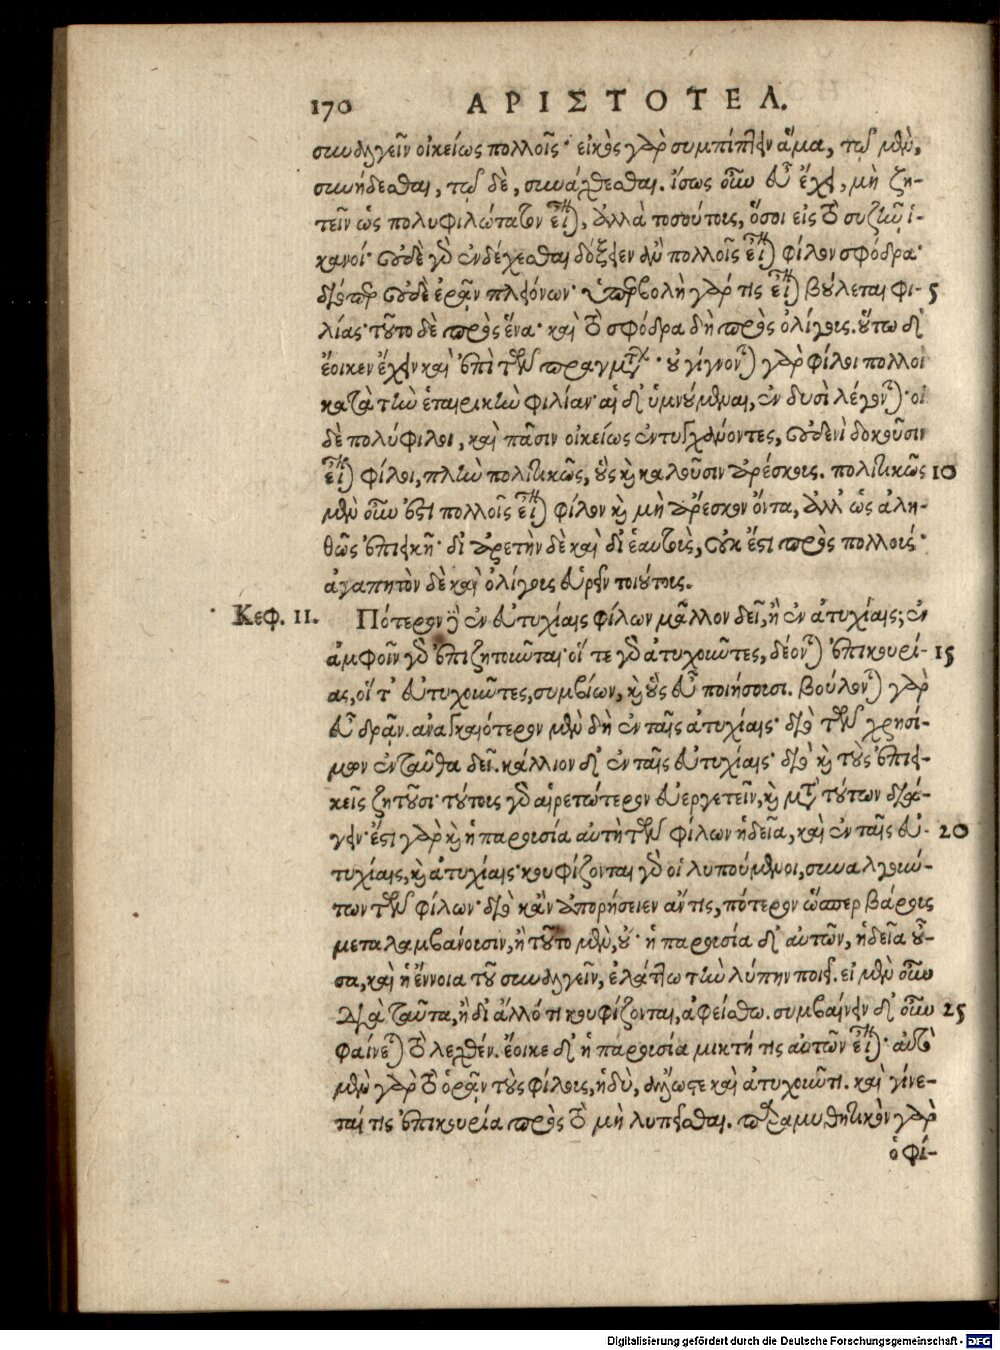 170 ΑΡΙΣΤΟΤΕΛ.
συναλγεῖν οἰκείως πολλοῖς· εἰκὸς γὰρ συμπίπτειν ἅμα, τῷ μὲν,
συνήδεσθαι, τῷ δὲ, συνάχθεσθαι. ἴσως οὖν εὖ ἔχει, μὴ ζη-
τεῖν ὡς πολυφιλώτατον εἶναι, ἀλλὰ τοσούτοις, ὅσοι εἰς τὸ συζῆν ἱ-
κανοί· οὐδὲ γὰρ ἐνδέχεσθαι δόξειεν ἂν πολλοῖς εἶναι φίλον σφόδρα·
διόπερ οὐδὲ ἐρᾶν πλειόνων· ὑπερβολὴ γάρ τις εἶναι βούλεται φι- 5
λίας· τοῦτο δὲ πρὸς ἕνα· καὶ τὸ σφόδρα δὴ πρὸς ὀλίγοις. οὕτω δ'
ἔοικεν ἔχειν καὶ ἐπὶ τῶν πραγμάτων· οὐ γίγνονται γὰρ φίλοι πολλοὶ
κατὰ τὴν ἑταιρικὴν φιλίαν· αἱ δ' ὑμνούμεναι, ἐν δυσὶ λέγονται· οἱ
δὲ πολύφιλοι, καὶ πᾶσιν οἰκείως ἐντυγχάνοντες, οὐδενὶ δοκοῦσιν
εἶναι φίλοι, πλὴν πολιτικῶς, οὓς καὶ καλοῦσιν ἀρέσκοις. πολιτικῶς 10
μὲν οὖν ἔστι πολλοῖς εἶναι φίλον καὶ μὴ ἄρεσκον ὄντα, ἀλλ' ὡς ἀλη-
θῶς ἐπιεικῆ· δι' ἀρετὴν δὲ καὶ δι' ἑαυτοὺς, οὐκ ἔστι πρὸς πολλούς·
ἀγαπητὸν δὲ καὶ ὀλίγοις εὑρεῖν τοιούτοις.
Κεφ. 11. Πότερον δ' ἐν εὐτυχίαις φίλων μᾶλλον δεῖ, ἢ ἐν ἀτυχίαις; ἐν
ἀμφοῖν γὰρ ἐπιζητοῦνται· οἵ τε γὰρ ἀτυχοῦντες, δέονται ἐπικουρί- 15
ας, οἵ τ' εὐτυχοῦντες, συμβίων, καὶ οὓς εὖ ποιήσουσι. βούλονται γὰρ
εὖ δρᾶν. ἀναγκαιότερον μὲν δὴ ἐν ταῖς ἀτυχίαις· διὸ τῶν χρησί-
μων ἐνταῦθα δεῖ. κάλλιον δ' ἐν ταῖς εὐτυχίαις· διὸ καὶ τοὺς ἐπιει-
κεῖς ζητοῦσι· τούτοις γὰρ αἱρετώτερον εὐεργετεῖν, καὶ μετὰ τούτων διά-
γειν· ἔστι γὰρ καὶ ἡ παρουσία αὐτὴ τῶν φίλων ἡδεῖα, καὶ ἐν ταῖς εὐ- 20
τυχίαις, καὶ ἀτυχίαις· κουφίζονται γὰρ οἱ λυπούμενοι, συναλγούν-
των τῶν φίλων· διὸ κἂν ἀπορήσειεν ἄν τις, πότερον ὥσπερ βάροις
μεταλαμβάνουσιν, ἢ τοῦτο μὲν, οὔ· ἡ παρουσία δ' αὐτῶν, ἡδεῖα οὖ-
σα, καὶ ἡ ἔννοια τοῦ συναλγεῖν, ἐλάττω τὴν λύπην ποιεῖ. εἰ μὲν οὖν
διὰ ταῦτα, ἢ δι' ἄλλό τι κουφίζονται, ἀφείσθω. συμβαίνειν δ' οὖν 25
φαίνεται τὸ λεχθέν. ἔοικε δ' ἡ παρουσία μικτή τις αὐτῶν εἶναι· αὐτὸ
μὲν γὰρ τὸ ὁρᾶν τοὺς φίλοις, ἡδὺ, ἄλλως τε καὶ ἀτυχοῦντι. καὶ γίνε-
ταί τις ἐπικουρία πρὸς τὸ μὴ λυπεῖσθαι. παραμυθητικὸν γὰρ
ὁ φί-
Digitalisierung gefördert durch die Deutsche Forschungsgemeinschaft - DFG